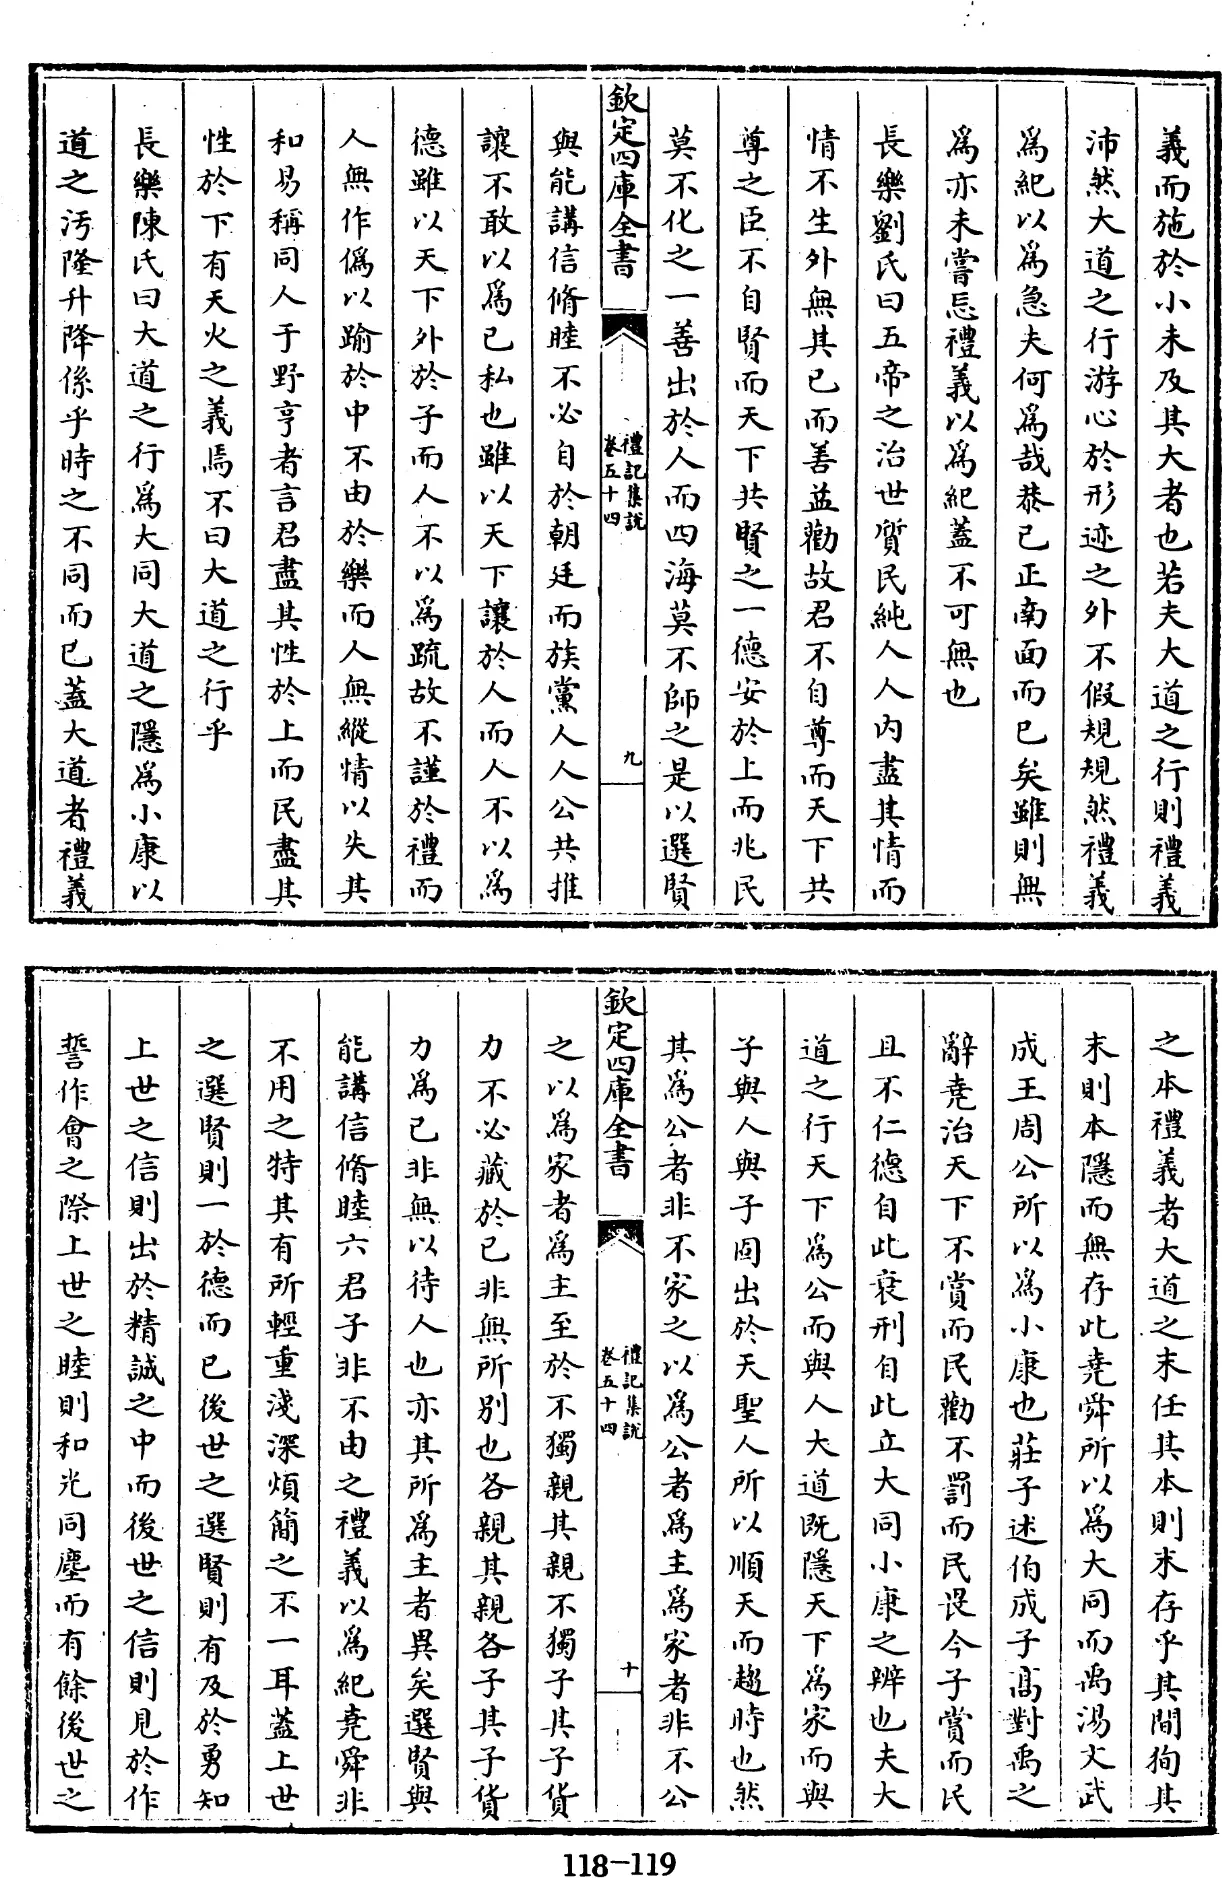 義而施於小未及其大者也若夫大道之行則禮義
沛然大道之行游心於形迹之外不假規規然禮義
爲紀以爲急夫何爲哉恭已正南面而已矣雖則無
爲亦未嘗忘禮義以爲紀蓋不可無也
長樂劉氏曰五帝之治世質民純人人内盡其情而
情不生外無其已而善益勸故君不自尊而天下共
尊之臣不自賢而天下共賢之一德安於上而兆民
莫不化之一善出於人而四海莫不師之是以選賢
欽定四庫全書
禮記集說
卷五十四
九
與能講信脩睦不必自於朝廷而族黨人人公共推
讓不敢以爲已私也雖以天下讓於人而人不以爲
德雖以天下外於子而人不以爲疏故不謹於禮而
人無作僞以踰於中不由於樂而人無縱情以失其
和易稱同人于野亨者言君盡其性於上而民盡其
性於下有天火之義焉不曰大道之行乎
長樂陳氏曰大道之行爲大同大道之隱爲小康以
道之汚隆升降係乎時之不同而已蓋大道者禮義
之本禮義者大道之末任其本則末存乎其間徇其
末則本隱而無存此堯舜所以爲大同而禹湯文武
成王周公所以爲小康也莊子述伯成子高對禹之
辭堯治天下不賞而民勸不罰而民畏今子賞而民
且不仁德自此衰刑自此立大同小康之辨也夫大
道之行天下爲公而與人大道旣隱天下爲家而與
子與人與子固出於天聖人所以順天而趨時也然
其爲公者非不家之以爲公者爲主爲家者非不公
欽定四庫全書
禮記集說
卷五十四
十
之以爲家者爲主至於不獨親其親不獨子其子貨
力不必藏於已非無所别也各親其親各子其子貨
力爲已非無以待人也亦其所爲主者異矣選賢與
能講信脩睦六君子非不由之禮義以爲紀堯舜非
不用之特其有所輕重淺深煩簡之不一耳蓋上世
之選賢則一於德而已後世之選賢則有及於勇知
上世之信則出於精誠之中而後世之信則見於作
誓作會之際上世之睦則和光同塵而有餘後世之
118-119